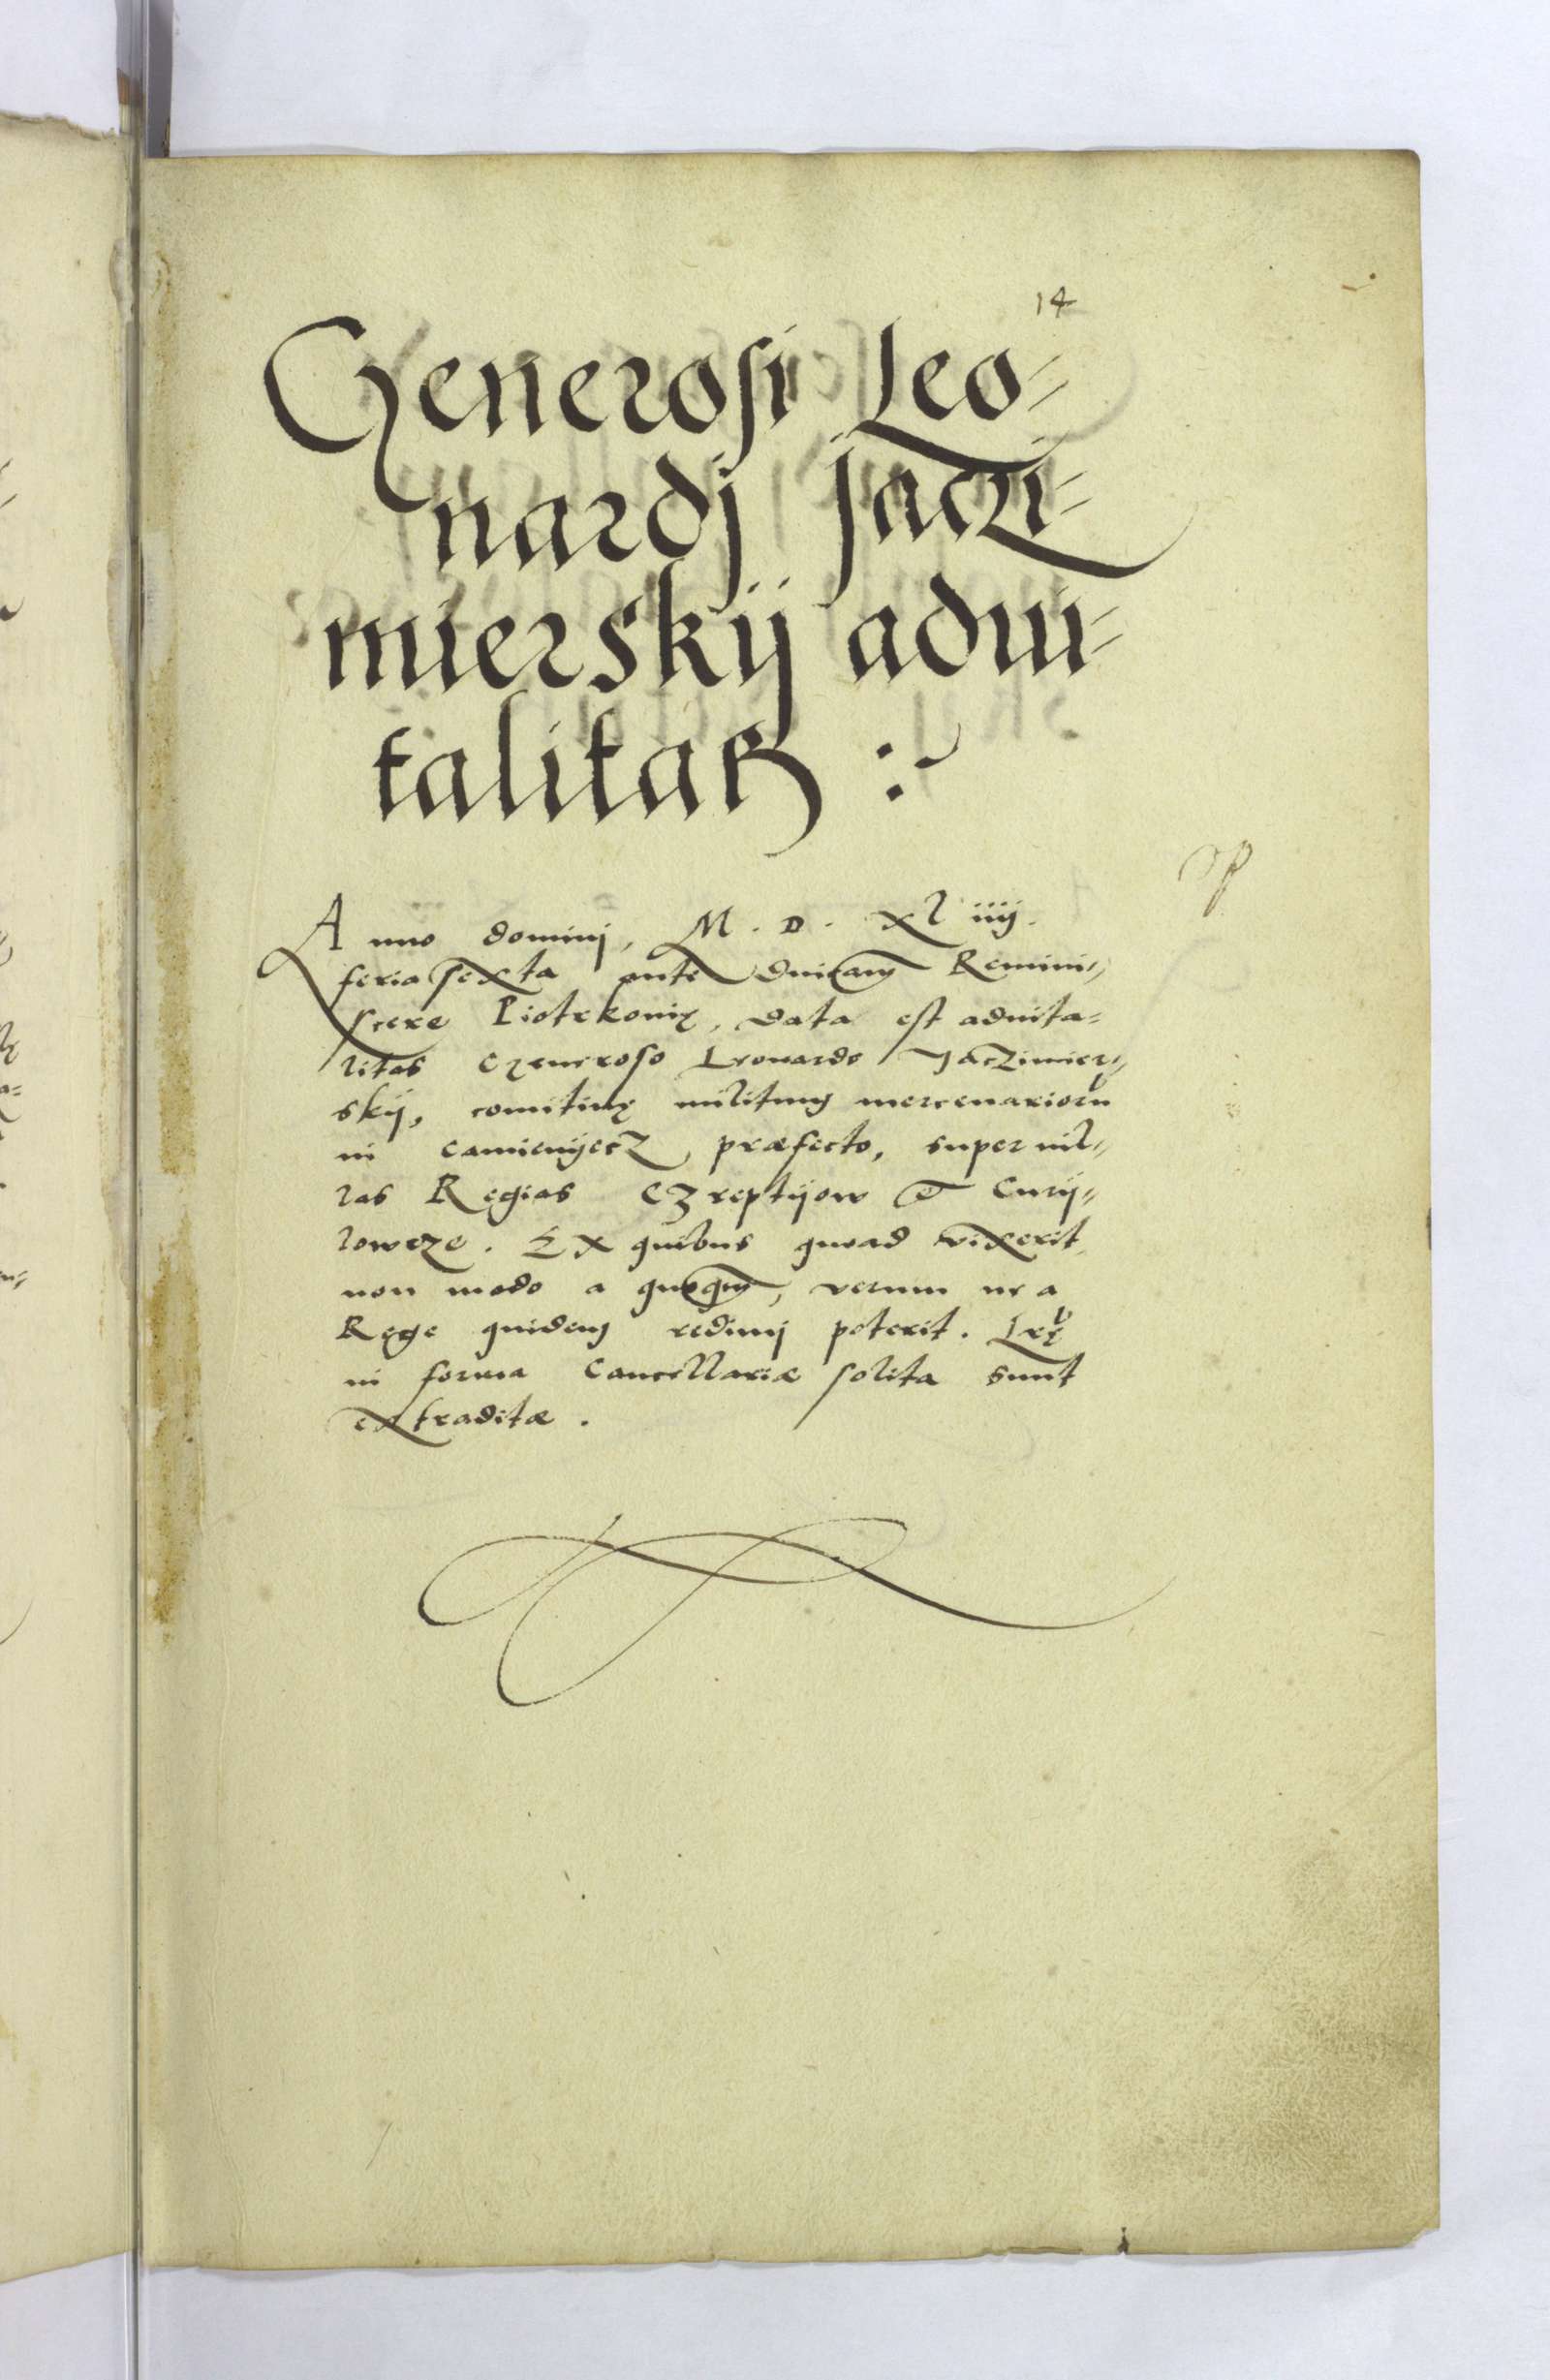 14
Generosi Leo-
nardj Jaczi-
mierskij advi-
talitas :
Anno dominj, M. D. xl iiij.
feria sexta ante dnicam Remini-
scere Piotrkovię, data est advita-
litas Generoso Leonardo Jaczimier-
skij, comitivę militum mercenarioru
in Camienijecz præfecto, super vil-
las Regias Czreptijow et Curij-
lowcze. Ex quibus quoad vixerit
non modo a quoqm, verum ne a
Rege quidem redimj poterit. Lrę
in forma Cancellariæ solita sunt
extraditæ.